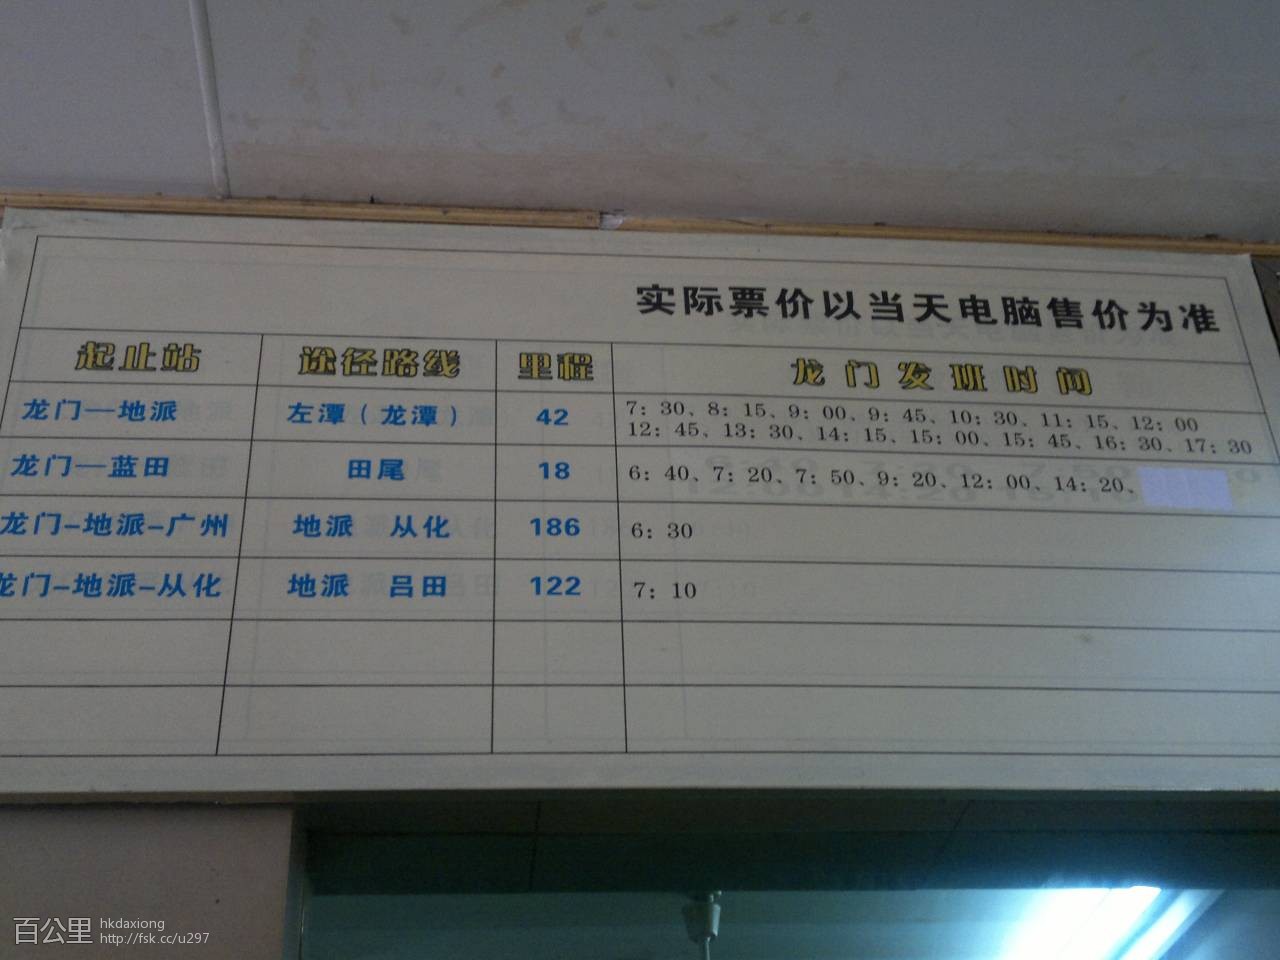 实际票价以当天电脑售价为准
起止站 途径路线 里程 龙门发班时间
龙门—地派 左潭（龙潭） 42 7：30、8：15、9：00、9：45、10：30、11：15、12：00
12：45、13：30、14：15、15：00、15：45、16：30、17：30
龙门—蓝田 田尾 18 6：40、7：20、7：50、9：20、12：00、14：20、
龙门–地派–广州 地派 从化 186 6：30
龙门–地派–从化 地派 吕田 122 7：10
百公里 hkdaxiong
http://fsk.cc/u297